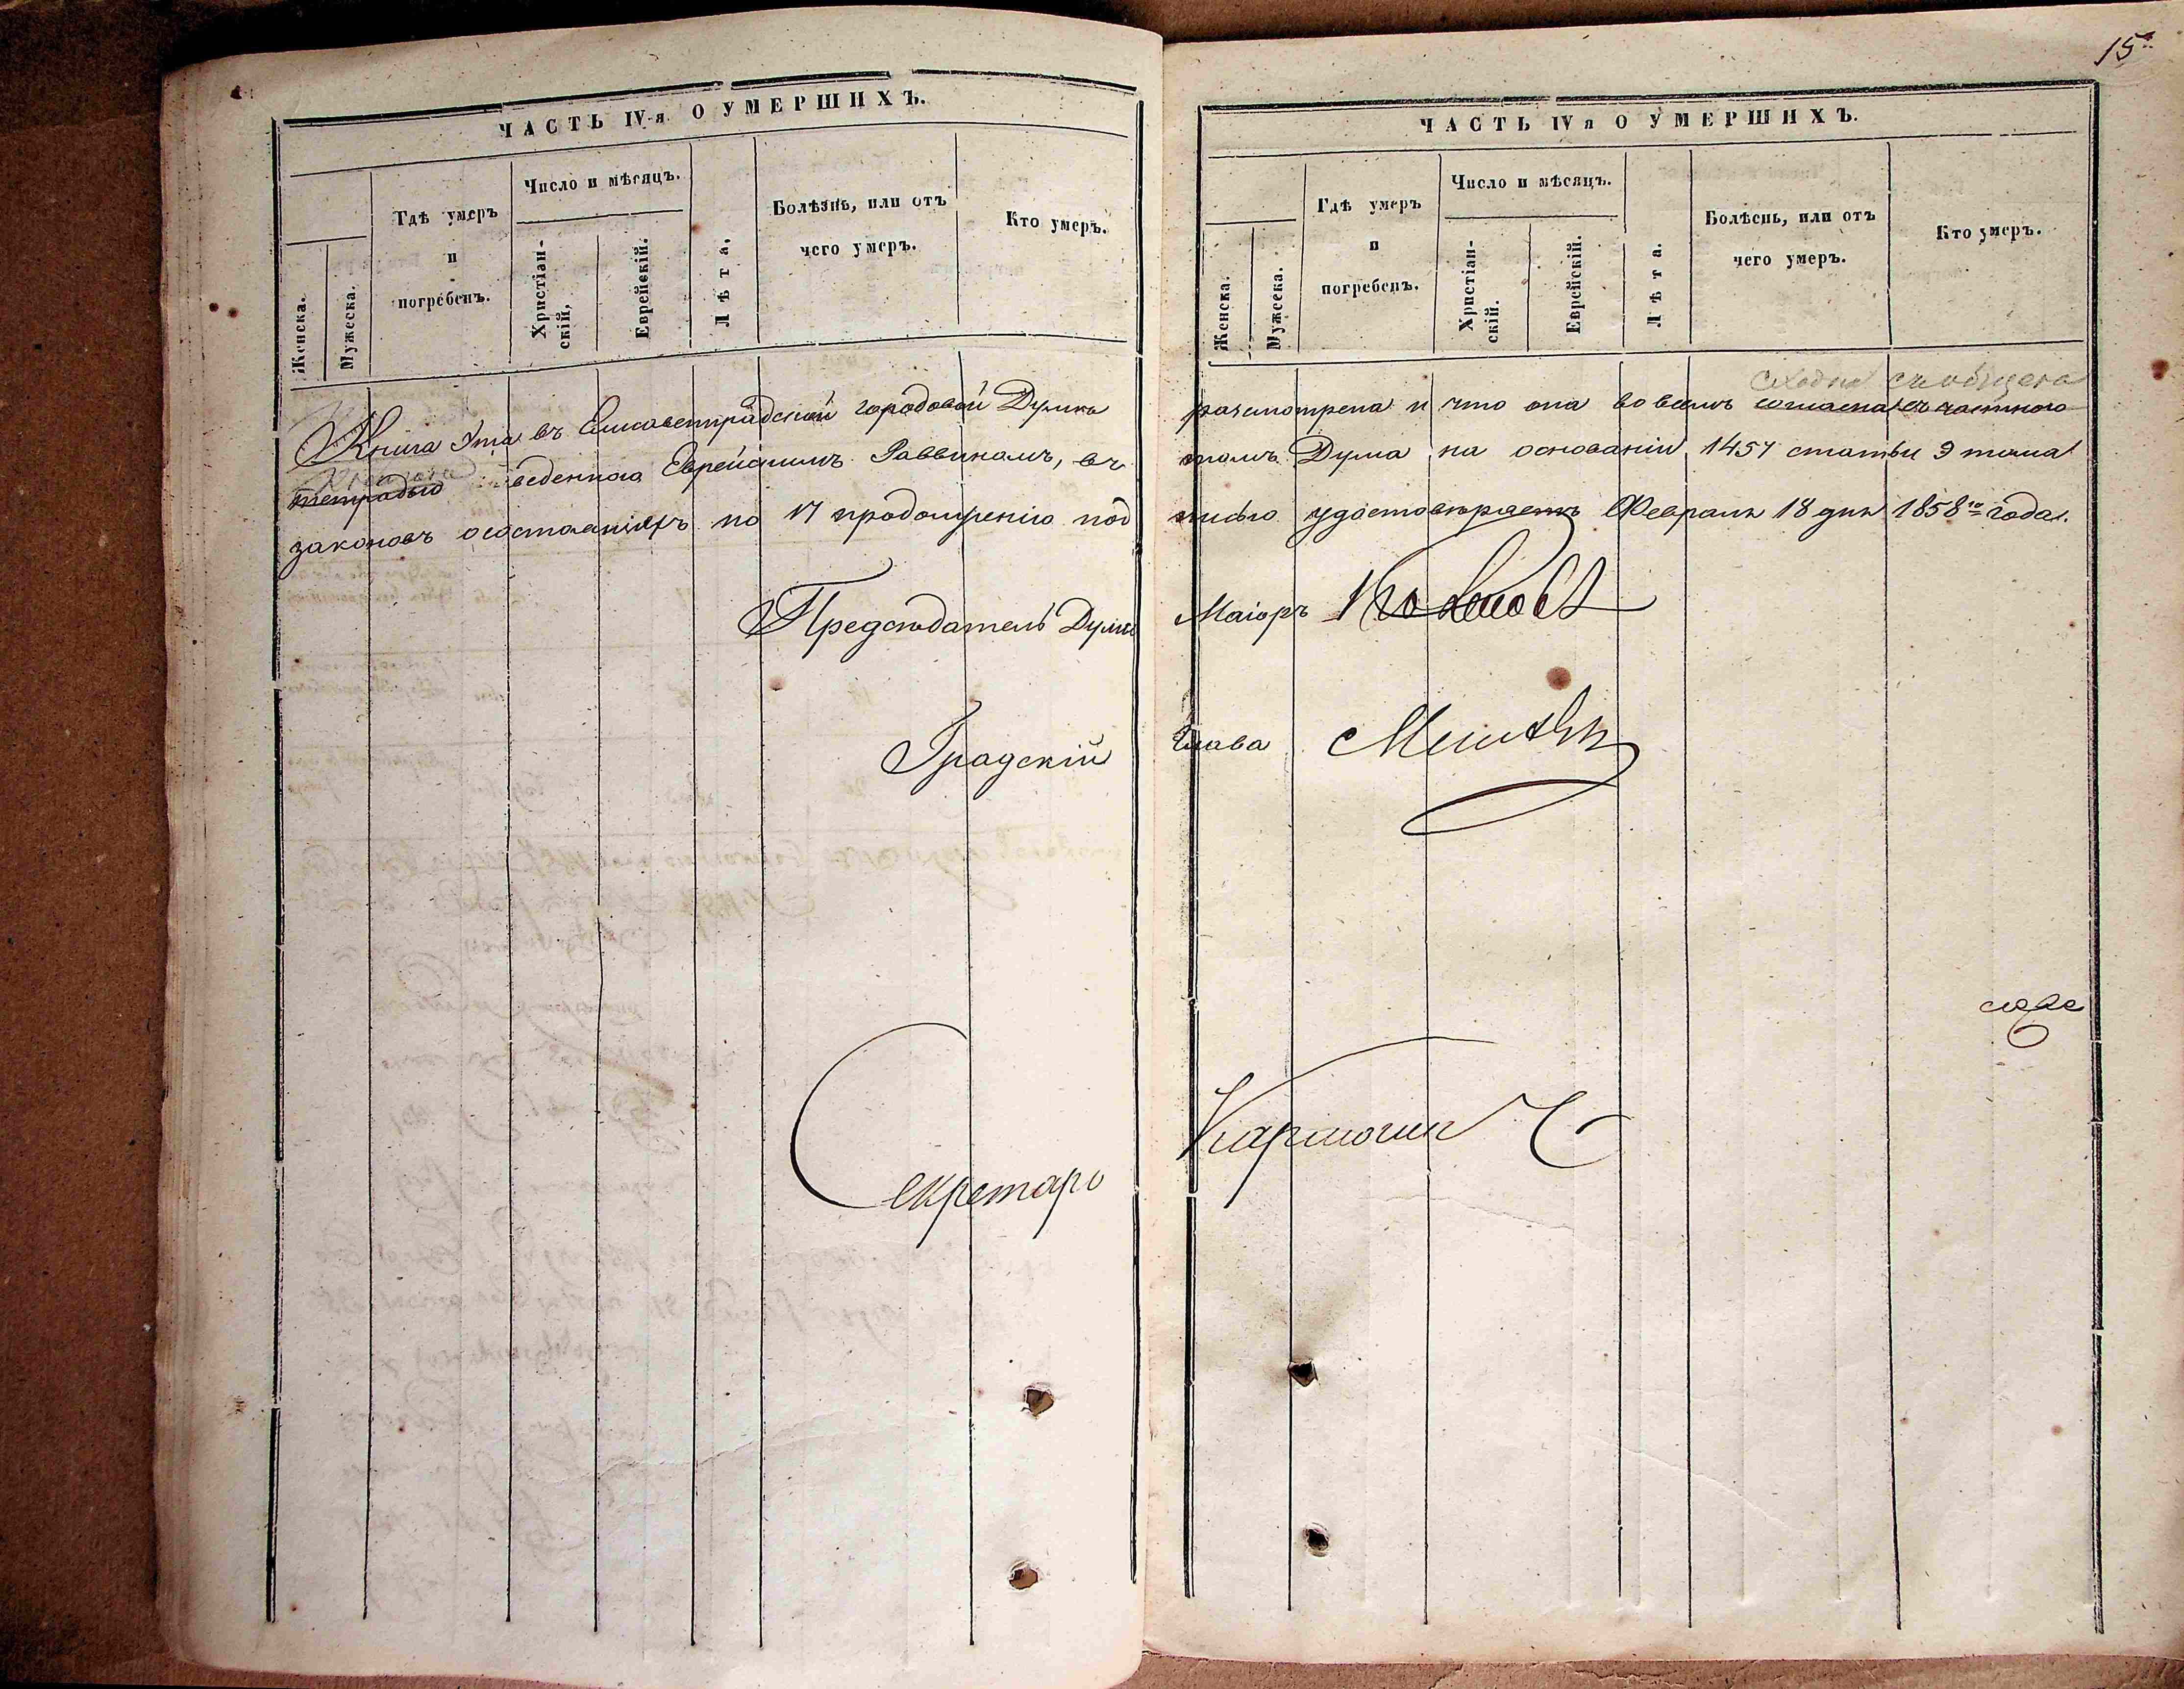 ЧАСТЬ IV-я О УМЕРШИХЪ.
Женска.
Мужеска.
Гдѣ умеръ
и
погребенъ.
Число и мѣсяцъ.
Христіан-
скій.
Еврейскій.
Лѣта.
Болѣзнь, или отъ
чего умеръ.
Кто умеръ.
Книга эта въ Елисаветградской городовой Думѣ
тетрадью веденною Еврейскимъ Раввиномъ, въ
законовъ о состояніяхъ по 17 продолженію под
Предсѣдатель Думы
Градскій
Секретарь
15
ЧАСТЬ IV я О УМЕРШИХЪ.
Женска.
Мужеска.
Гдѣ умеръ
и
погребенъ.
Число и мѣсяцъ.
Христіан-
скій.
Еврейскій.
Лѣта.
Болѣснь, или отъ
чего умеръ.
Кто умеръ.
сходна
разсмотрена и что она во всемъ согласна съ частного
томъ Дума на основаніи 1457 статьи 9 тома
писью удостовѣряетъ Февраля 18 дня 1858го года.
Маіоръ
Глава